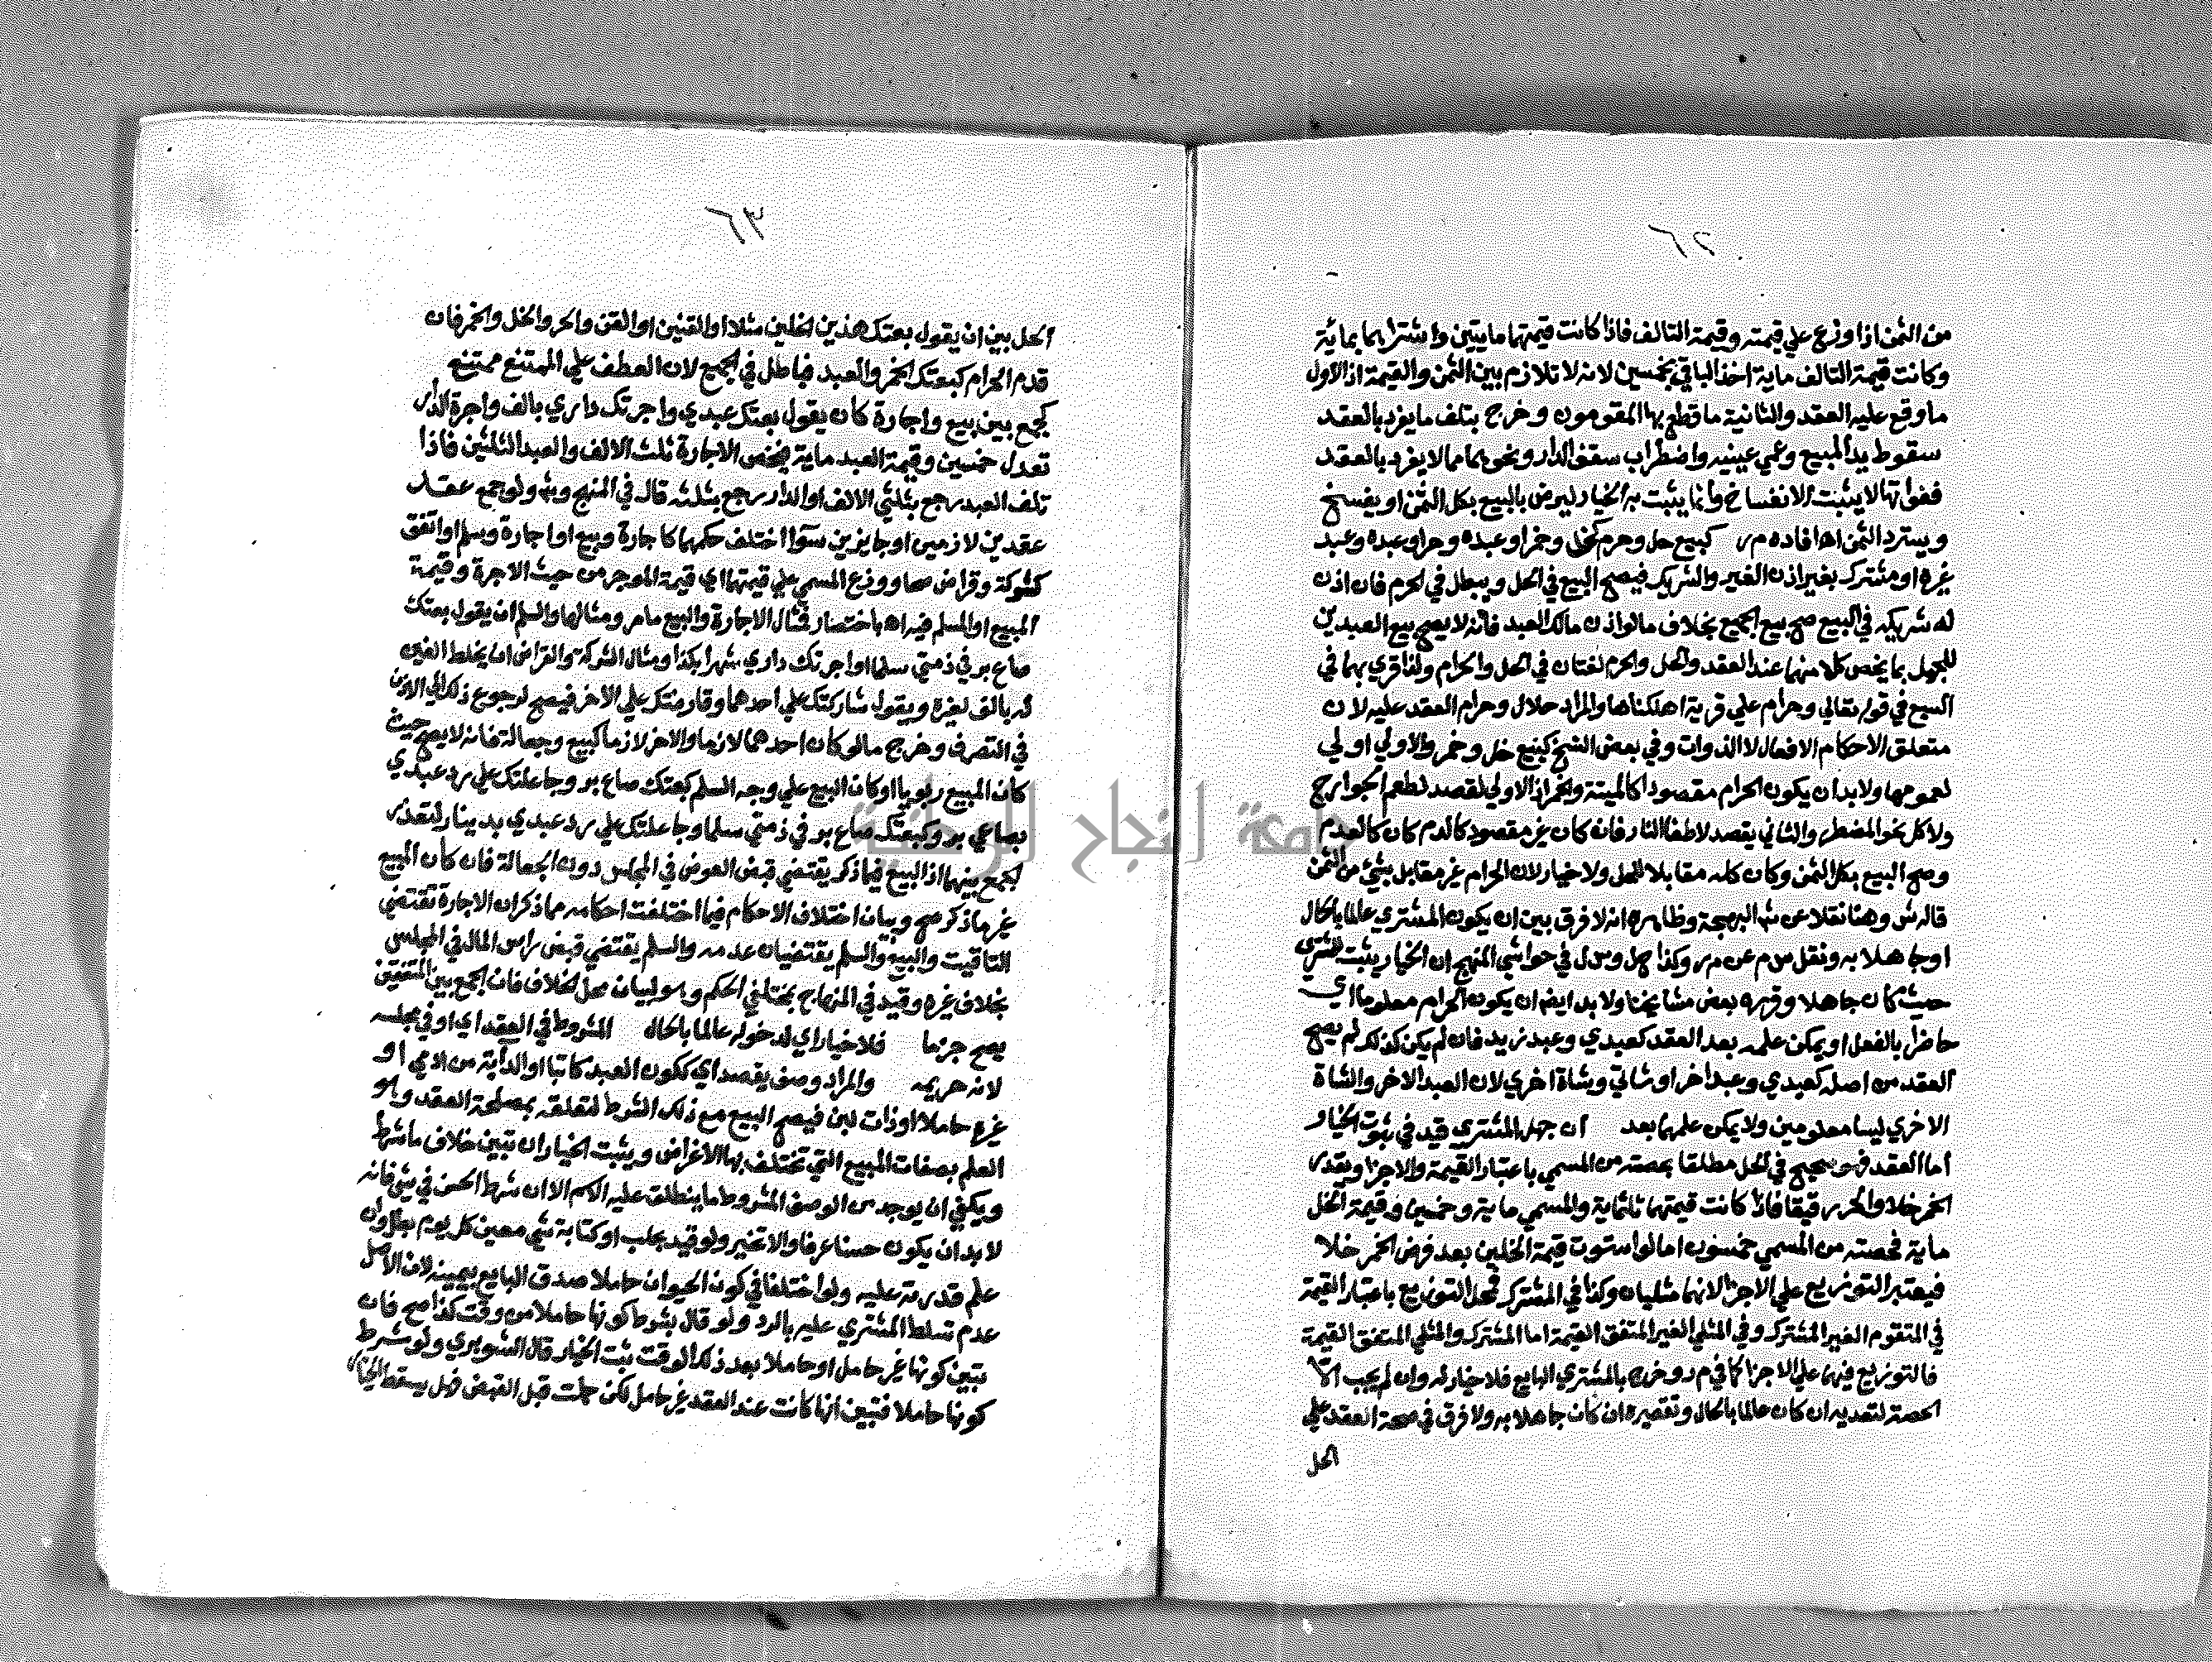 ٦٢
من الثمن اذا وزع علي قيمته وقيمة التالف فاذا كانت قيمتهما مايتين واشتراهما بماية
وكانت قيمة التالف ماية اخذ الباقي بخمسين لانه لا تلازم بين الثمن والقيمة اذ الاول
ما وقع عليه العقد والثانية ما قطع بها المقومون وخرج بتلف ما يفرد بالعقد
سقوط يد المبيع وعمي عينيه واضطراب سقف الدار ونحوهما مما لا يفرد بالعقد
ففواتها لا يثبت الانفساخ وانما يثبت به الخيار ليرض بالبيع بكل الثمن او يفسخ
ويسترد الثمن اه افاده م ر كبيع حل وحرم كخل وخمر او عبده وحر او عبده وعبد
غيره او مشترك بغير اذن الغير والشريك فيصح البيع في الحل ويبطل في الحرم فان اذن
له شريكه في البيع صح بيع الجميع بخلاف ما لو اذن مالك العبد فانه لا يصح بيع العبدين
للجهل بما يخص كلا منهما عند العقد والحل والحرم لغتان في الحلال والحرام ولذا قري بهما في
السبع في قوله تعالي وحرام علي قرية اهلكناها والمراد حلال وحرام العقد عليه لان
متعلق الاحكام الافعال لا الذوات وفي بعض النسخ كبيع خل وخمر والاولي اولي
لعمومها ولا بد ان يكون الحرام مقصودا كالميتة والخمر اذ الاولي تقصد لطعم الجوارح
ولاكل نحو المضطر والثاني يقصد لاطفا النار فان كان غير مقصود كالدم كان كالعدم
وصح البيع بكل الثمن وكان كله مقابلا للحل ولا خيار لان الحرام غير مقابل بشئ من الثمن
قاله ش وهنا نقلا عن شرح البهجة وظاهره انه لا فرق بين ان يكون المشتري عالما بالحال
او جاهلا به ونقل س م عن م ر وكذا ح ل وس ل في حواشي المنهج ان الخيار يثبت للمشتري
حيث كان جاهلا وقرره بعض مشايخنا ولا بد ايضا ان يكون الحرام معلوما اي
حاضرا بالفعل او يمكن علمه بعد العقد كعبدي وعبد زيد فان لم يكن كذلك لم يصح
العقد من اصله كعبدي وعبد اخر او شاتي وشاة اخري لان العبد الاخر والشاة
الاخري ليسا معلومين ولا يمكن علمهما بعد ان جهل المشتري قيد في ثبوت الخيار
اما العقد فهو صحيح في الحل مطلقا بحصته من المسمي باعتبار القيمة والاجزا ويقدر
الخمر خلا والحر رقيقا فاذا كانت قيمتهما ثلثماية والمسمي ماية وخمسين وقيمة الخل
ماية فحصته من المسمي خمسون اما لو استوت قيمة الخلين بعد فرض الخمر خلا
فيعتبر التوزيع علي الاجزا لانهما مثليان وكذا في المشترك فمحل التوزيع باعتبار القيمة
في المتقوم الغير المشترك وفي المثلي الغير المتفق القيمة اما المشترك والمثلي المتفق القيمة
فالتوزيع فيهما علي الاجزا كما في م ر وخرج بالمشتري البايع فلا خيار له وان لم يجب الا
الحصة لتعديه ان كان عالما بالحال وتقصيره ان كان جاهلا به ولا فرق في صحة العقد علي
الحل
٦٣
الحل بين ان يقول بعتك هذين الخلين مثلا او القنين او القن والحر والخل والخمر فان
قدم الحرام كبعتك الخمر والعبد فباطل في الجميع لان العطف علي الممتنع ممتنع
كجمع بين بيع واجارة كان يقول بعتك عبدي واجرتك داري بالف واجرة الدار
تعدل خمسين وقيمة العبد ماية فيخص الاجارة ثلث الالف والعبد الثلثين فاذا
تلف العبد رجع بثلثي الالف او الدار رجع بثلثه قال في المنهج وشرحه ولو جمع عقد
عقدين لازمين او جايزين سوا اختلف حكمهما كاجارة وبيع او اجارة وسلم او اتفق
كشركة وقراض صحا ووزع المسمي علي قيمتهما اي قيمة الموجر من حيث الاجرة وقيمة
المبيع او المسلم فيه اه باختصار فمثال الاجارة والبيع ما مر ومثالها والسلم ان يقول بعتك
صاع بر في ذمتي سلما واجرتك داري شهرا بكذا ومثال الشركة والقراض ان يخلط الفين
له بالف لغيره ويقول شاركتك علي احدهما وقارضتك علي الاخر فيصح لرجوع ذلك الي الاذن
في التصرف وخرج ما لو كان احدهما لازما والاخر لازما كبيع وجعالة فانه لا يصح حيث
كان المبيع ربويا او كان البيع علي وجه السلم كبعتك صاع بر وجاعلتك علي رد عبدي
بصاعي بر وكبعتك صاع بر في ذمتي سلما وجاعلتك علي رد عبدي بدينار لتعذر
الجمع بينهما اذ البيع فيما ذكر يقتضي قبض العوض في المجلس دون الجعالة فان كان المبيع
غير ما ذكر صح وبيان اختلاف الاحكام فيما اختلفت احكامه مما ذكر ان الاجارة تقتضي
التاقيت والبيع والسلم يقتضيان عدمه والسلم يقتضي قبض راس المال في المجلس
بخلاف غيره وقيد في المنهاج بمختلفي الحكم وهو لبيان محل الخلاف فان الجمع بين المتفقين
يصح جزما فلا خيار اي لدخوله عالما بالحال المشروط في العقد اي او في مجلسه
لانه حريمه والمراد وصف يقصد اي ككون العبد كاتبا او الدابة من الادمي او
غيره حاملا او ذات لبن فيصح البيع مع ذلك الشرط لتعلقه بمصلحة العقد وهو
العلم بصفات المبيع التي تختلف بها الاغراض ويثبت الخيار ان تبين خلاف ما شرط
ويكفي ان يوجد من الوصف المشروط ما ينطلق عليه الاسم الا ان شرط الحسن في شي فانه
لا بد ان يكون حسنا عرفا والا تخير ولو قيد بحلب او كتابة شي معين كل يوم بطل وان
علم قدرته عليه ولو اختلفا في كون الحيوان حاملا صدق البايع بيمينه لان الاصل
عدم تسلط المشتري عليه بالرد ولو قال بشرط كونها حاملا من وقت كذا صح فان
تبين كونها غير حامل او حاملا بعد ذلك الوقت ثبت الخيار قال الشوبري ولو شرط
كونها حاملا فتبين انها كانت عند العقد غير حامل لكن حملت قبل القبض فهل يسقط الخيار